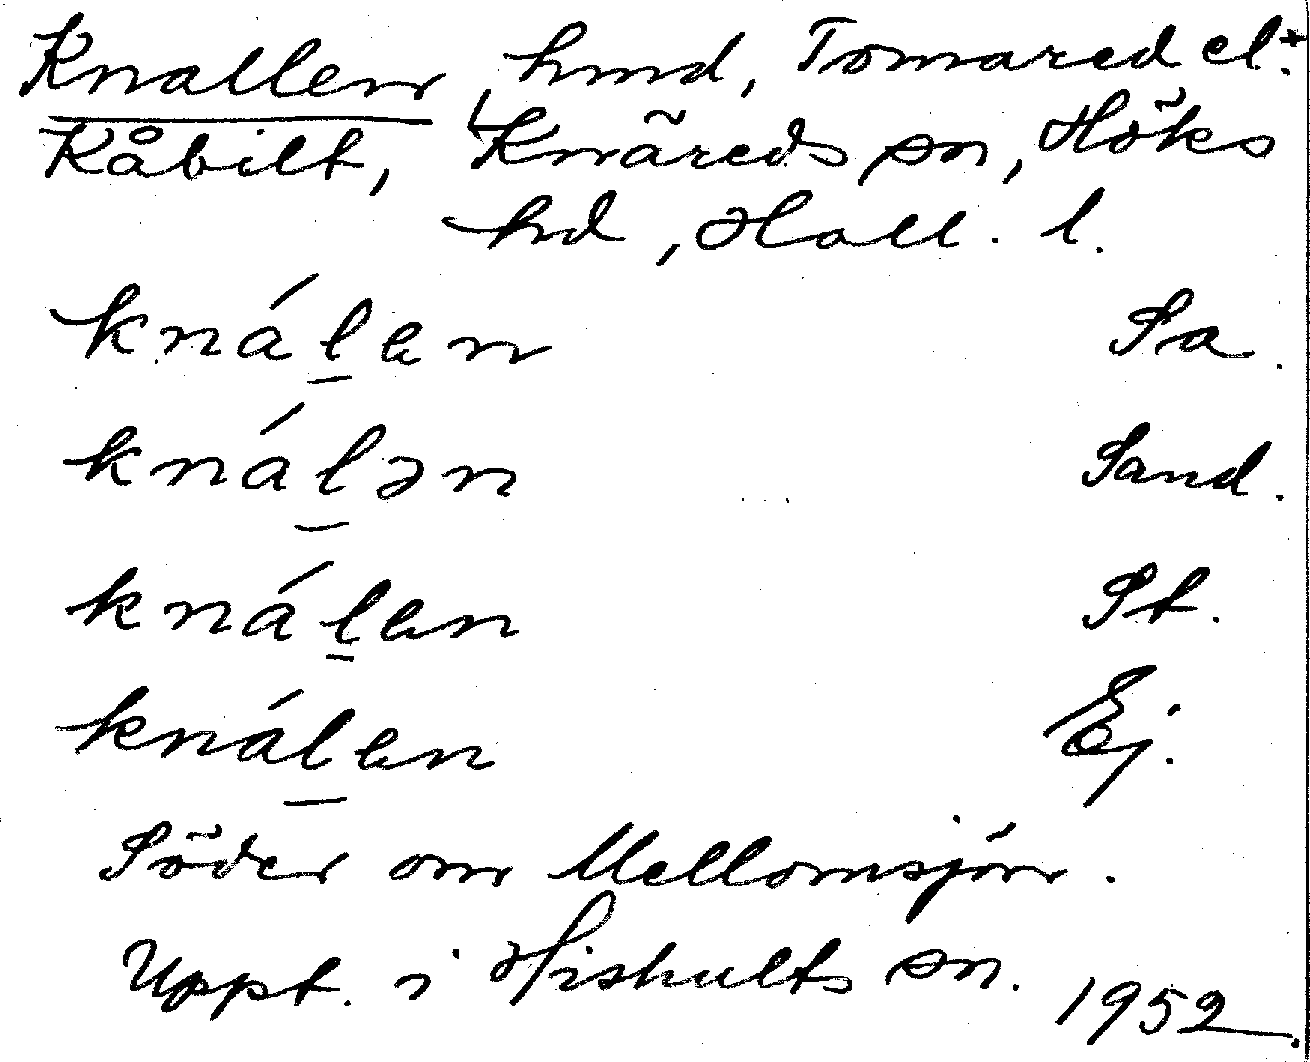 Knallen, hmd, Tomared el.
Kåbilt, Knäreds sn, Höks
hd, Hall. l.
knál̠en Sa.
knál̠ən Sand.
knál̠en St.
knál̠en Ej.
Söder om Mellomsjön.
Uppt. i Hishults sn. 1952.